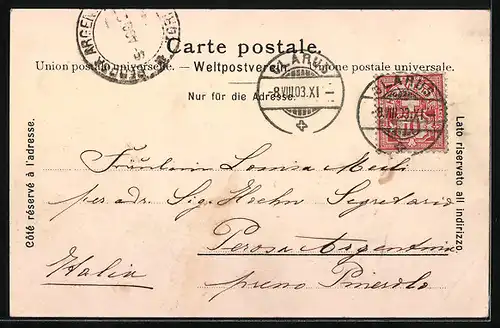 Carte postale.
Union postale universelle. — Weltpostverein. — Unione postale universale.
Nur für die Adresse.
GLARUS
-8.VIII.03.XI-
GLARUS
-8.VIII.03.XI-
10
PEROSA ARGENTINA
Côté réservé à l'adresse.
Lato riservato all indirizzo.
Fräulein Louisa
per adr. Sig. Hoehn Segretario
Perosa Argentina
Italia
preso Pinerolo